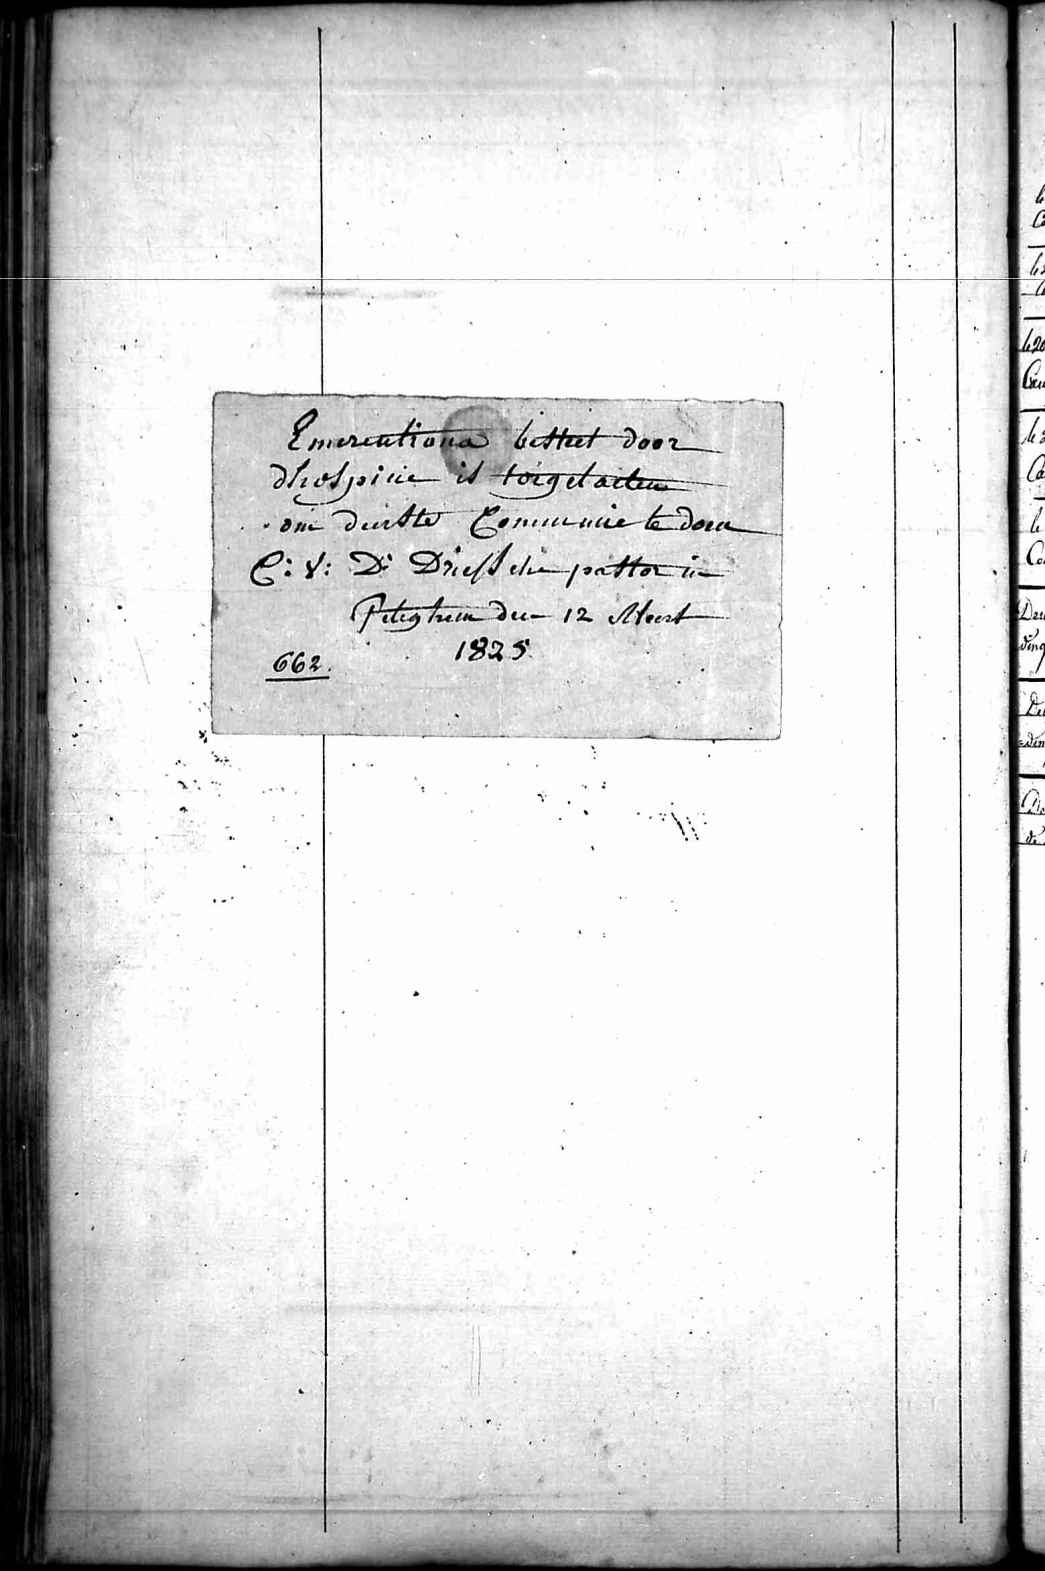 Emerentiana besteet door
dhospicie is toegelaeten
om deirste Communie te doen
C: V: D: Driessche pastor in
Peteghem den 12 Meert
1825
662.